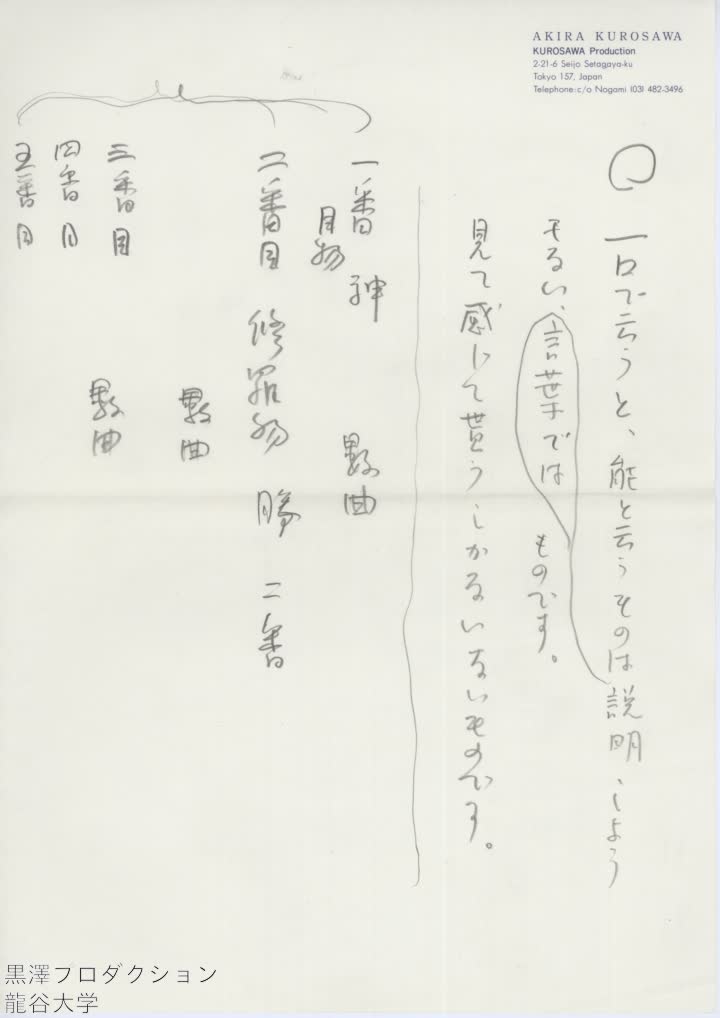 AKIRA KUROSAWA
KUROSAWA Production
2-21-6 Seijo Setagaya-ku
Tokyo 157, Japan
Telephone: c/o Nogami (03) 482-3496
○ 一口で云うと、能と云うものは説明しよう
もない、言葉では ものです。
見て感じて貰うしかないないものです。
一番 神 数曲
目物
二番目 修羅物 勝 二番
数曲
三番目
数曲
四番目
五番目
黒澤プロダクション
龍谷大学